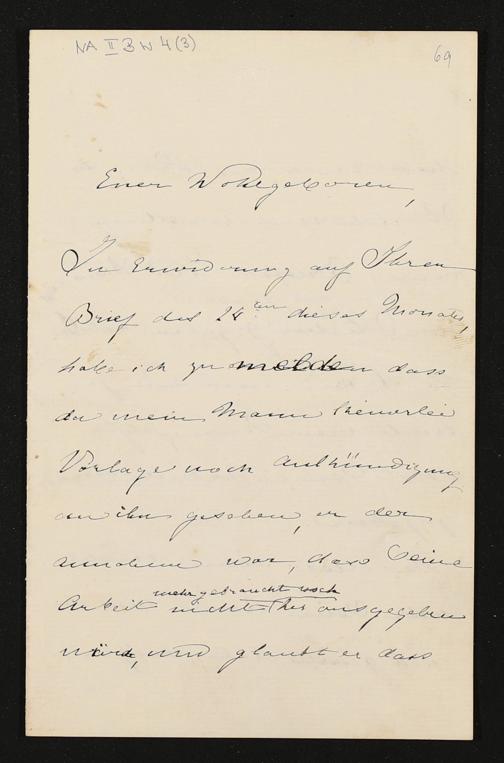 NA II B N 4 (3)
69
Euer Wohlgeboren,
In Erwiderung auf Ihren
Brief des 24ten dieses Monates,
habe ich zu melden dass
da mein Mann keinerlei
Vorlage noch Ankündigung
an ihn gesehen, er der
war, dass seine
mehr gebraucht noch
Arbeit nicht ausgegeben
würde, und glaubt er dass